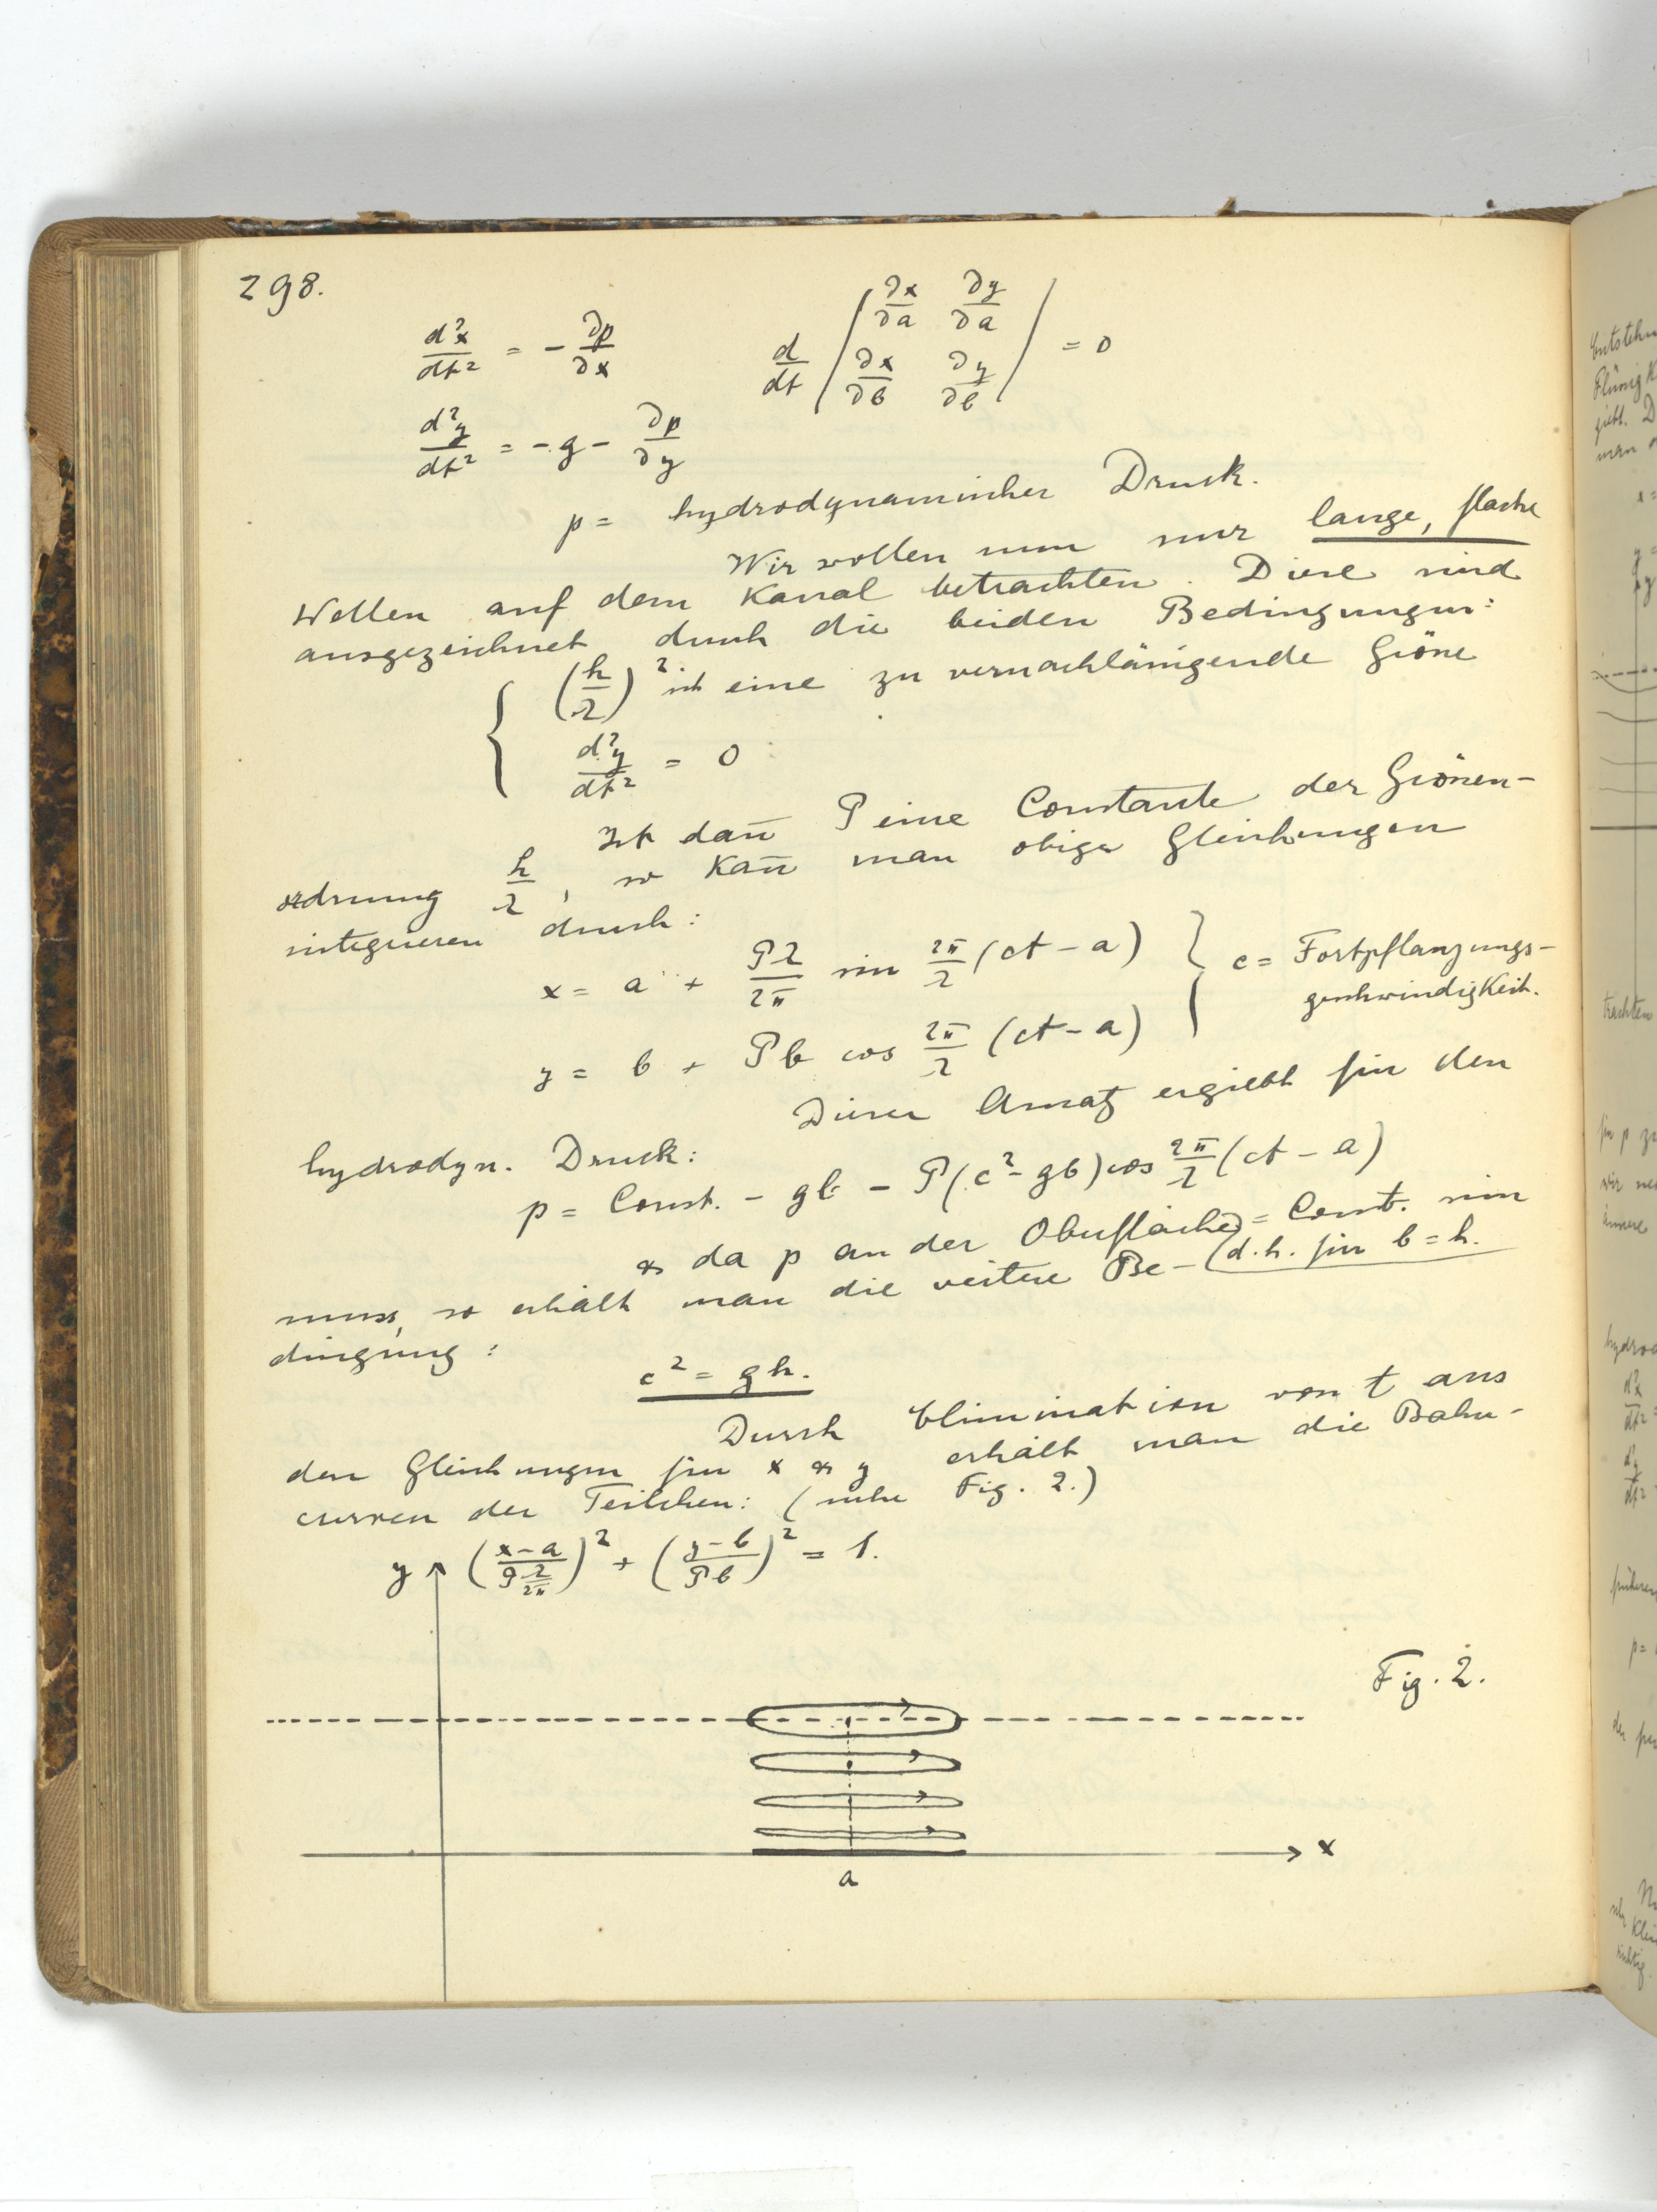 298.
d²x/dt² = - ∂p/∂x    d/dt | ∂x/∂a ∂y/∂a ; ∂x/∂b ∂y/∂b | = 0
d²y/dt² = - g - ∂p/∂y
p = hydrodynamischer Druck.
Wir wollen nun nur lange, flache
Wellen auf dem Kanal betrachten. Diese sind
ausgezeichnet durch die beiden Bedingungen:
{ (h/λ)² ist eine zu vernachlässigende Grösse
d²y/dt² = 0
Ist dañ P eine Constante der Grössen-
ordnung h/λ, so kañ man obige Gleichungen
integrieren durch:
x = a + Pλ/2π sin 2π/λ (ct - a) } c = Fortpflanzungs-
geschwindigkeit.
y = b + Pb cos 2π/λ (ct - a)
Dieser Ansatz ergiebt für den
hydrodyn. Druck:
p = Const. - gb - P(c² - gb) cos 2π/λ (ct - a)
& da p an der Oberfläche = Const. sein
(d.h. für b = h.
muss, so erhält man die weitere Be-
dingung:
c² = gh.
Durch Elimination von t aus
den Gleichungen für x & y erhält man die Bahn-
curven der Teilchen: (siehe Fig. 2.)
y ((x-a)/(P λ/2π))² + ((y-b)/(Pb))² = 1.
Fig. 2.
x
a